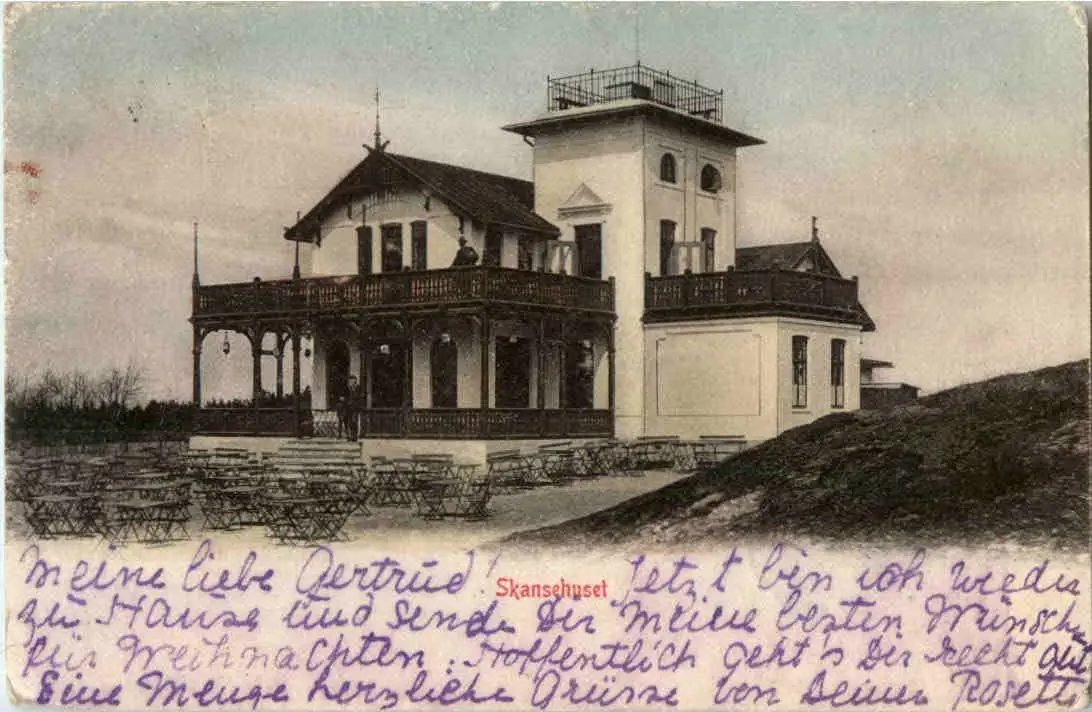 Meine liebe Gertrud! Skansehuset Jetzt bin ich wieder
zu Hause und sende Dir meine besten Wünsche
für Weihnachten. Hoffentlich geht's Dir recht gut
Eine Menge herzliche Grüsse von Deiner Rosetti